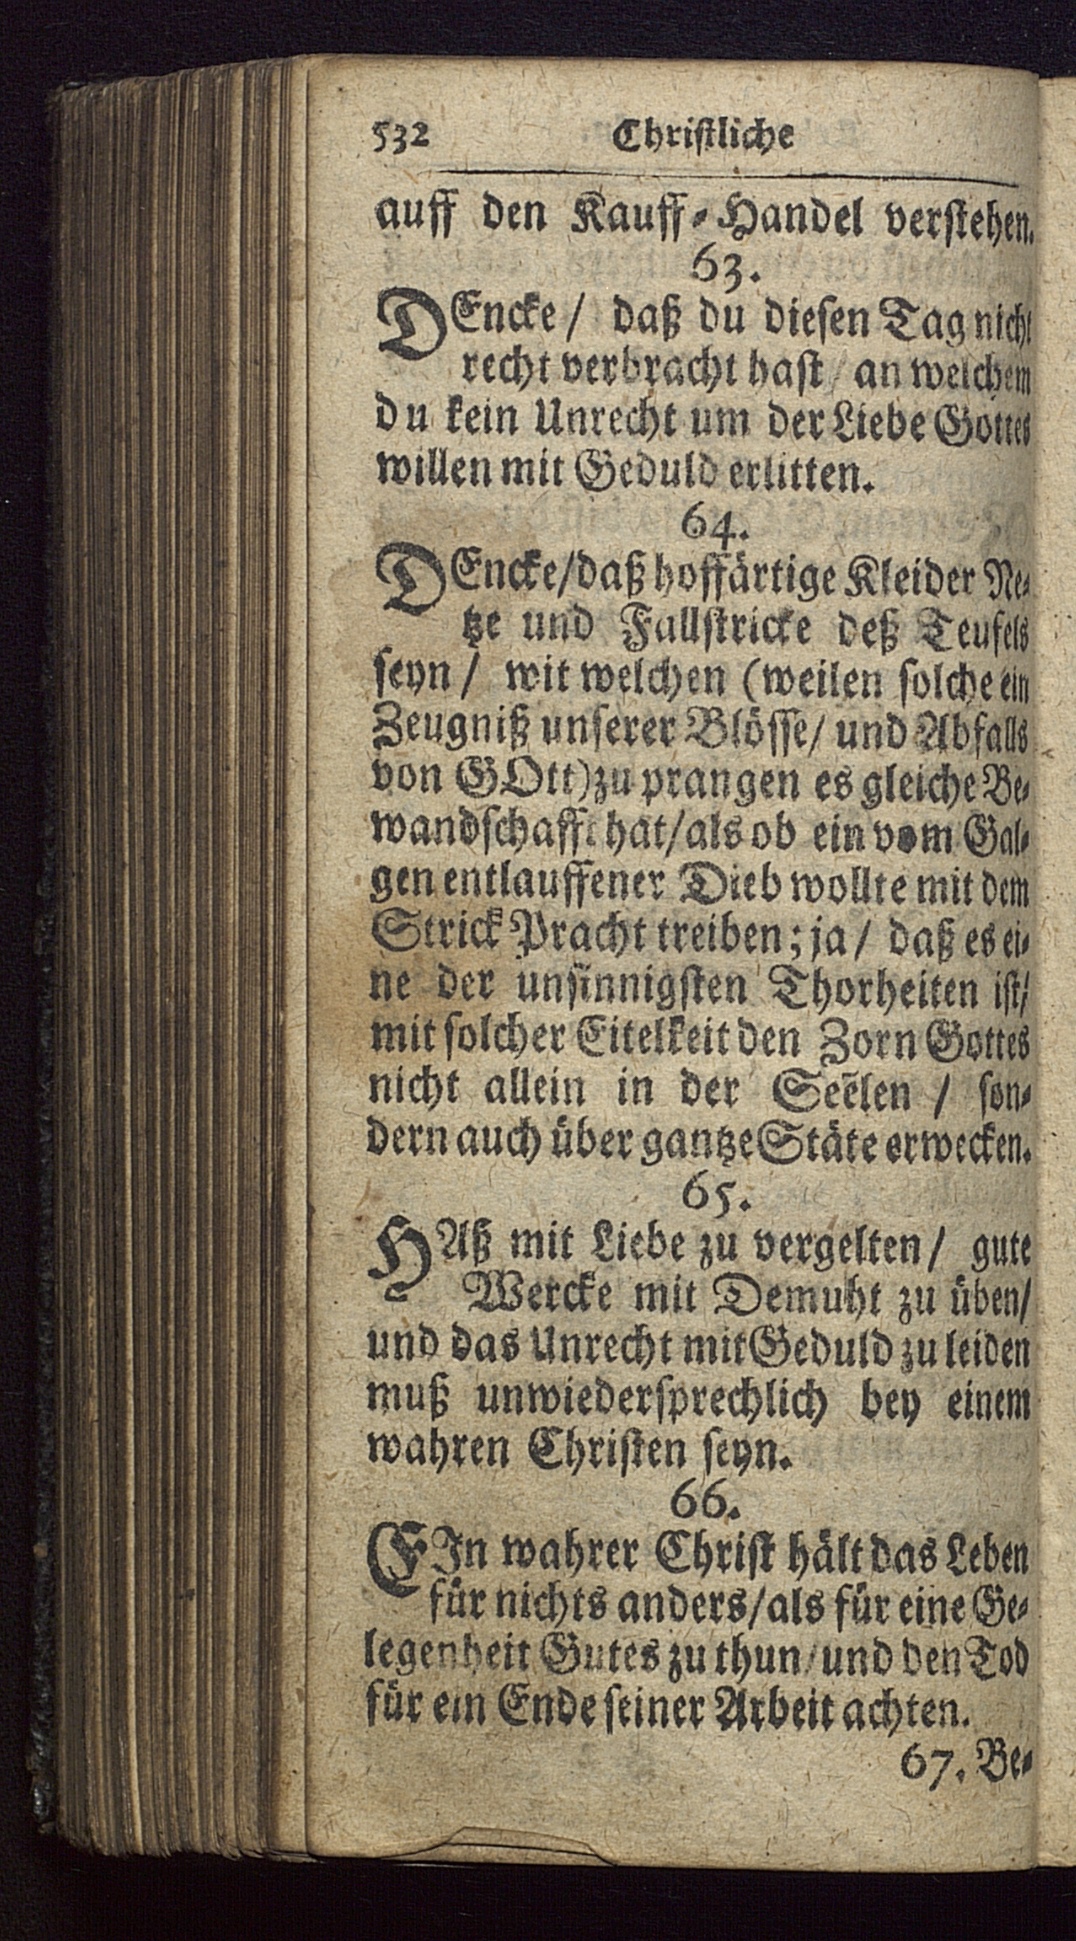 532 Christliche
auff den Kauff-Handel verstehen.
63.
DEncke / daß du diesen Tag nicht
recht verbracht hast / an welchem
du kein Unrecht um der Liebe Gottes
willen mit Geduld erlitten.
64.
DEncke/daß hoffärtige Kleider Ne-
tze und Fallstricke deß Teufels
seyn / wit welchen (weilen solche ein
Zeugniß unserer Blösse/ und Abfalls
von GOtt) zu prangen es gleiche Be-
wandschafft hat/als ob ein vom Gal-
gen entlauffener Dieb wollte mit dem
Strick Pracht treiben; ja / daß es ei-
ne der unsinnigsten Thorheiten ist/
mit solcher Eitelkeit den Zorn Gottes
nicht allein in der Seẽlen / son-
dern auch über gantze Stäte erwecken.
65.
HAß mit Liebe zu vergelten / gute
Wercke mit Demuht zu üben/
und das Unrecht mit Geduld zu leiden
muß unwiedersprechlich bey einem
wahren Christen seyn.
66.
EIn wahrer Christ hält das Leben
für nichts anders/als für eine Ge-
legenheit Gutes zu thun/und den Tod
für ein Ende seiner Arbeit achten.
67. Be-